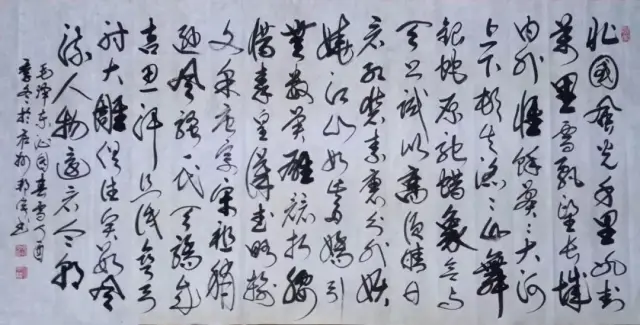 北國風光千里冰封
萬里雪飘望长城
内外惟餘莽〻大河
上下顿失滔〻山舞
银蛇原驰蜡象欲与
天公试比高须晴日
看红装素裹分外妖
娆江山如此多娇引
無数英雄竞折腰
惜秦皇漢武略输
文采唐宗宋祖稍
逊风骚一代天骄成
吉思汗只识弯弓
射大雕俱往矣数风
流人物还看今朝
毛泽东沁园春雪丁酉